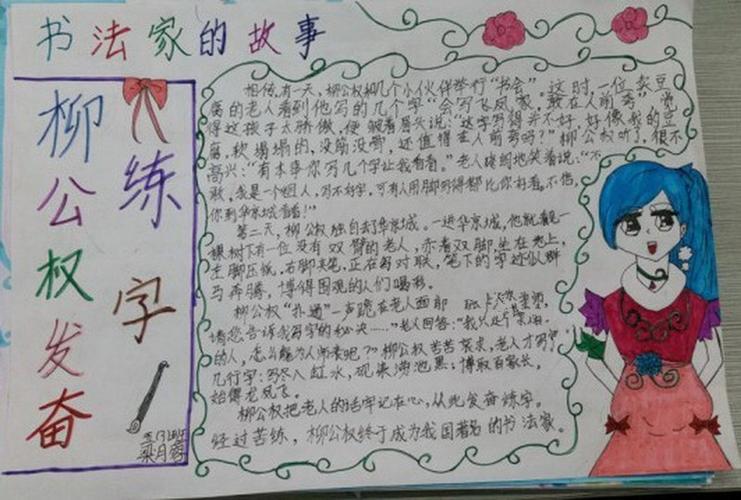 书法家的故事
柳公权发奋
练字
相传有一天，柳公权和几个小伙伴举行"书会"。这时，一位卖豆
腐的老人看到他写的几个字"会写飞凤家，敢在人前夸"，觉
得这孩子太骄傲，便皱着眉头说："这字写得并不好，好像我的豆
腐，软塌塌的，没筋没骨，还值得在人前夸吗？"柳公权听了，很不
高兴："有本事你写几个字让我看看。"老人爽朗地笑着说："不
敢，我是一个粗人，写不好字，可有人用脚写得都比你好看，不信，
你到华京城看看！"
第二天，柳公权独自去了华京城。一进华京城，他就看见一
棵树下有一位没有双臂的老人，赤着双脚，坐在地上，
左脚压纸，右脚夹笔，正在写对联，笔下的字迹似群
马奔腾，博得围观的人们喝彩。
柳公权"扑通"一声跪在老人面
请您告诉我写字的秘决……"老人回答："我
的人，怎么能为人师表呢？"柳公权苦苦哀求，老人才写了
几行字：写尽八缸水，砚染涝池黑；博取百家长，
始得龙凤飞。
柳公权把老人的话牢记在心，从此发奋练字。
经过苦练，柳公权终于成为我国著名的书法家。